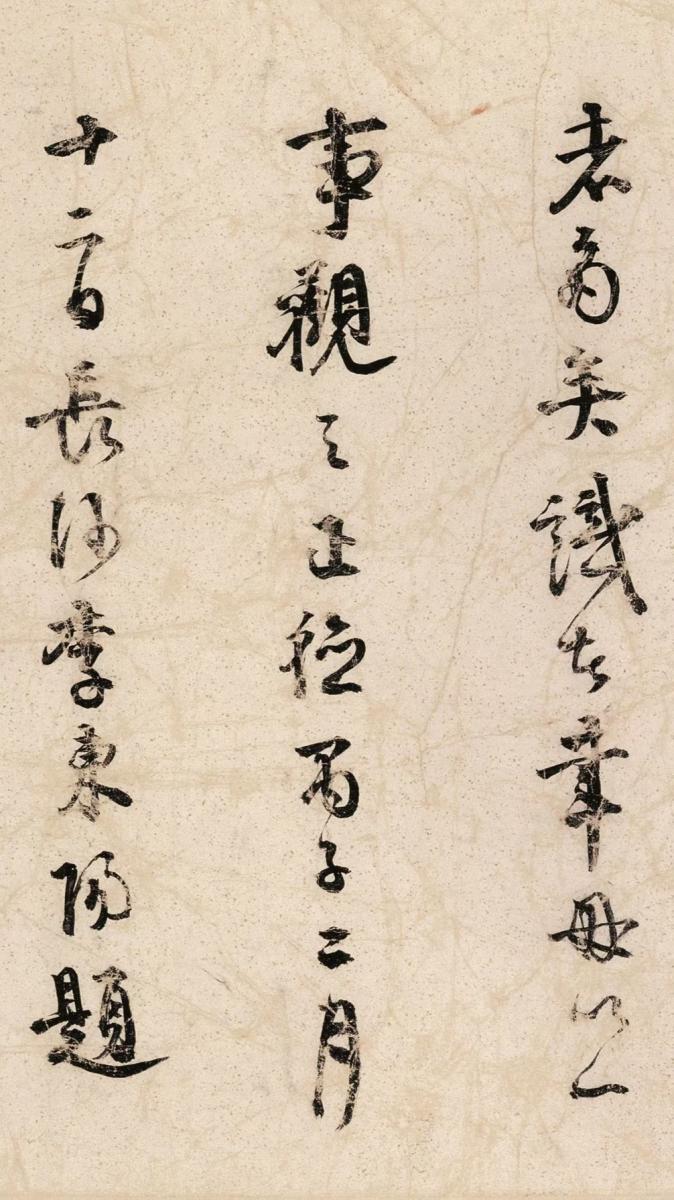 者矣識者幸毋以一
事觀之正德丙子二月
十二日長沙李東陽題